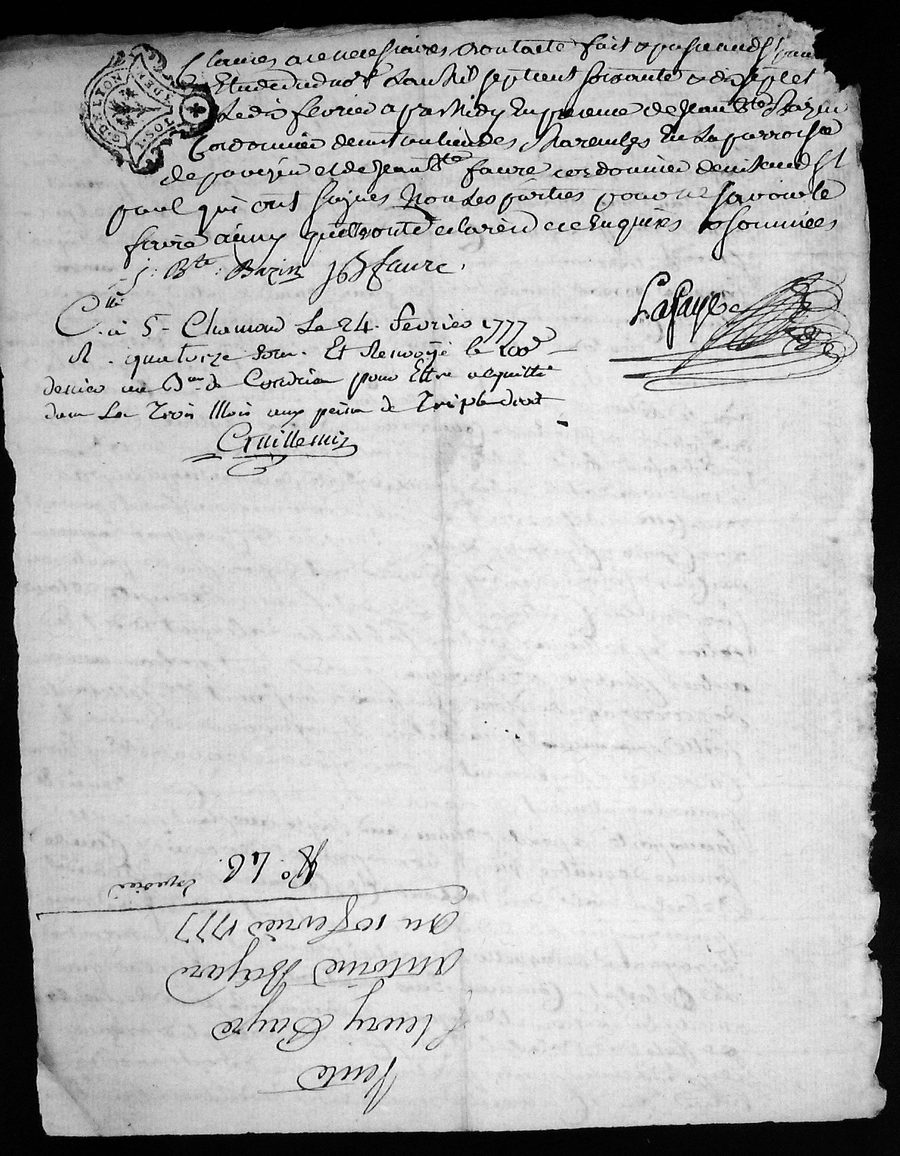 G. DE LYON
clauses a ce necessaires Dontacte fait & passé aud St paul
Etude dud not.e Lan mil sept cent soixante & dix sept et
Le dix fevrier apres midy En presence de Jean B.te Bazin
Cordonnier demeurant au lieu des En La parroisse
de pavezin et de Jean B.te faure cordonnier demt aud St
paul qui ont signes Non Les parties pour ne scavoir le
faire ainsy quelles ont declaré de ce Enquises & sommées
j: B.te: Bazin JB faure.
Lafaye
C.llé à S.t Chamond Le 24. fevrier 1777
R. quatorze sous. Et Renvoyé le 100.e
denier au B.au de Condrieu pour Etre acquitté
dans Les Trois Mois aux peines de Triple droit
Guillemin
Vente
fleury
Antoine
Du 10 fevrier 1777
N.o 48.